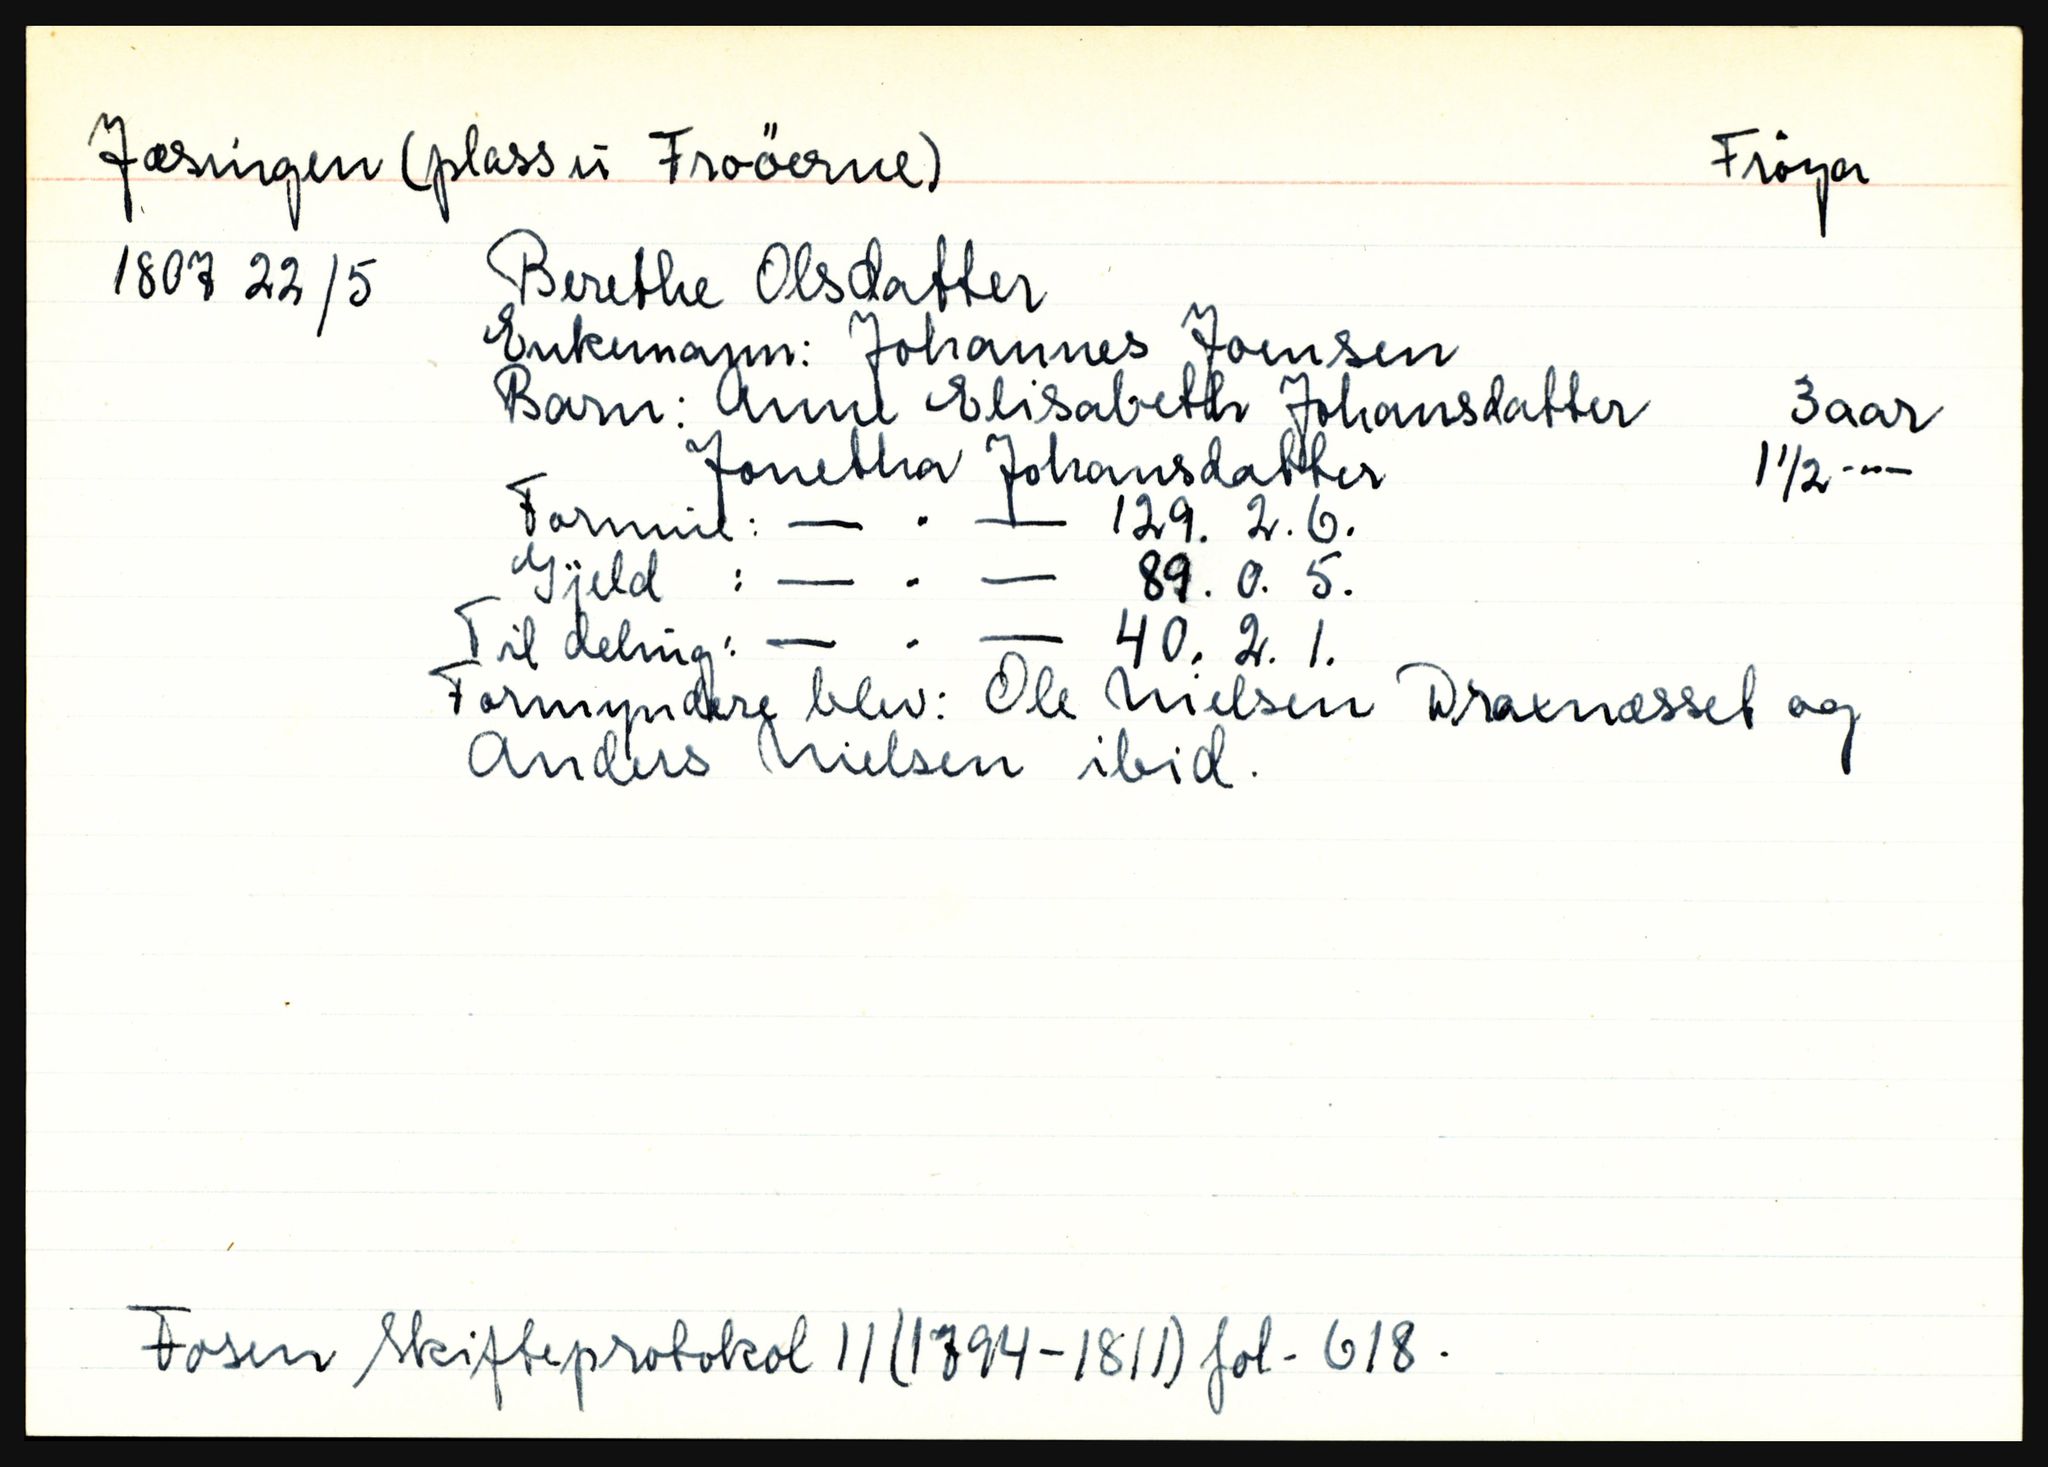 Jæsingen (plass u Froöerne) Fröya
1807 22/5 Berethe Olsdatter
Enkemann: Johannes Joensen
Barn: Anne Elisabeth Johansdatter 3 aar
Jonetha Johansdatter 1 1/2 -"-
Formue: — . — 129. 2. 6.
Gjeld : — . — 89. 0. 5.
Til deling: — . — 40. 2. 1.
Formyndere blev: Ole Nielsen Draxnæsset og
Anders Nielsen ibid.
Fosen Skifteprotokol 11 (1794-1811) fol. 618.